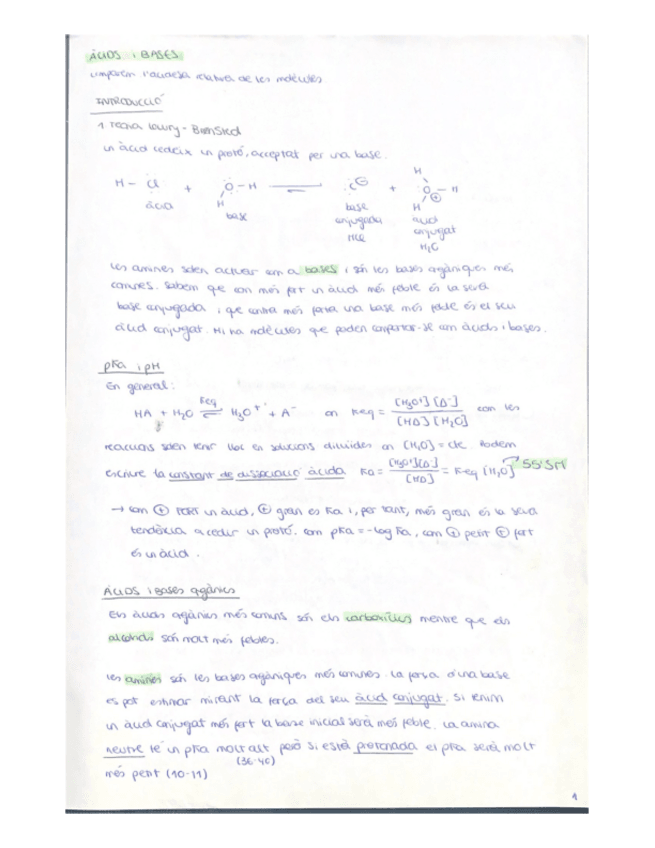 ÀCIDS I BASES
comparem l'acidesa relativa de les molècules
INTRODUCCIÓ
1. Teoria Lowry - Bronsted
un àcid cedeix un protó, acceptat per una base.
H
H - Cl + O - H ⇌ Cl⊖ + O - H
H H ⊕
àcid base base àcid
conjugada conjugat
HCl H₃O
Les amines solen actuar com a bases i són les bases orgàniques més
comunes. Sabem que com més fort un àcid més feble és la seva
base conjugada i que contra més forta una base més feble és el seu
àcid conjugat. Hi ha molècules que poden comportar-se com àcids i bases.
pKa i pH
En general:
HA + H₂O ⇌ H₃O⁺ + A⁻ on Keq = [H₃O⁺][A⁻] / [HA][H₂O] com les
Keq
reaccions solen tenir lloc en solucions diluïdes on [H₂O] = cte. Podem
escriure la constant de dissociació àcida Ka = [H₃O⁺][A⁻] / [HA] = Keq [H₂O] 55'5M
→ com ⊕ FORT un àcid, ⊕ gran es Ka i, per tant, més gran és la seva
tendència a cedir un protó. com pKa = -log Ka, com ⊕ petit ⊕ fort
és un àcid.
ÀCIDS i Bases orgànics
Els àcids orgànics més comuns són els carboxílics mentre que els
alcohols són molt més febles.
Les amines són les bases orgàniques més comunes. La força d'una base
es pot estimar mirant la força del seu àcid conjugat. Si tenim
un àcid conjugat més fort la base inicial serà més feble. La amina
neutre té un pKa molt alt però si està protonada el pKa serà molt
(36-40)
més petit (10-11)
1